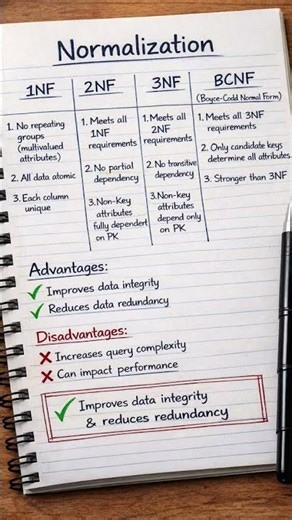 Normalization
1NF
1. No repeating
groups
(multivalued
attributes)
2. All data atomic
3. Each column
unique
2NF
1. Meets all
1NF
requirements
2. No partial
dependency
3. Non-Key
attributes
fully dependent
on PK
3NF
1. Meets all
2NF
requirements
2. No transitive
dependency
3. Non-Key
attributes
depend only
on PK
BCNF
(Boyce-Codd Normal Form)
1. Meets all 3NF
requirements
2. Only candidate keys
determine all attributes.
3. Stronger than 3NF
Advantages:
✓ Improves data integrity
✓ Reduces data redundancy
Disadvantages:
✗ Increases query complexity
✗ Can impact performance
✓ Improves data integrity
& reduces redundancy